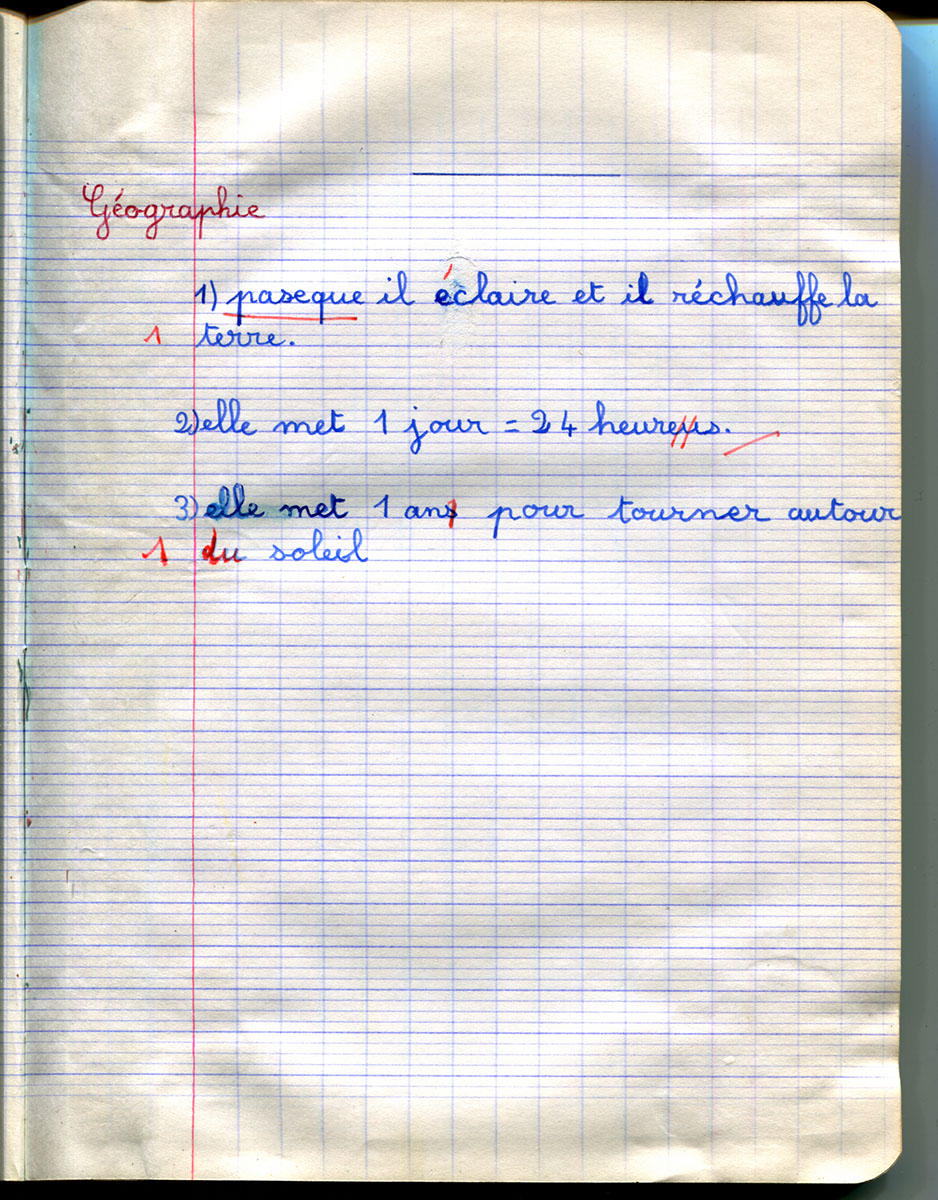 Géographie
1) paseque il éclaire et il réchauffe la
1 terre.
2) elle met 1 jour = 24 heureus.
3) elle met 1 ans pour tourner autour
1 du soleil